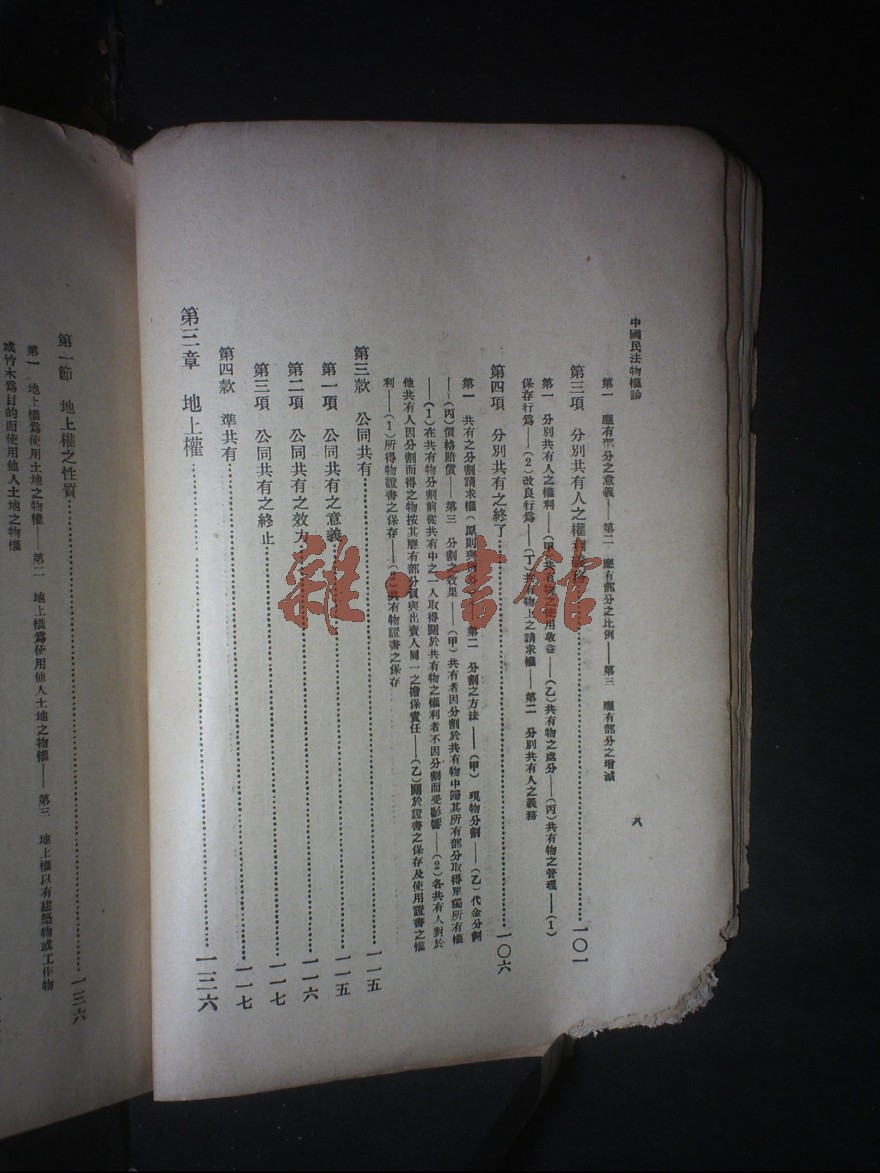 中國民法物權論
八
第一　應有部分之意義——第二　應有部分之比例——第三　應有部分之增減
第三項　分別共有人之權利義務…一〇一
第一　分別共有人之權利——(甲)共有物之使用收益——(乙)共有物之處分——(丙)共有物之管理——(1)
保存行爲——(2)改良行爲——(丁)共有物上之請求權——第二　分別共有人之義務
第四項　分別共有之終了…一〇六
第一　共有之分割請求權(原則與例外)——第二　分割之方法——(甲)現物分割——(乙)代金分割
——(丙)價格賠償——第三　分割之效果——(甲)共有者因分割於共有物中歸其所有部分取得單獨所有權
——(1)在共有物分割前從共有中之一人取得關於共有物之權利者不因分割而受影響——(2)各共有人對於
他共有人因分割而得之物按其應有部分負與出賣人同一之擔保責任——(乙)關於證書之保存及使用證書之權
利——(1)所得物證書之保存——(2)共有物證書之保存
第三款　公同共有…一一五
第一項　公同共有之意義…一一五
第二項　公同共有之效力…一一六
第三項　公同共有之終止…一一七
第四款　準共有…一一七
第三章　地上權…一三六
第一節　地上權之性質…一三六
第一　地上權爲使用土地之物權——第二　地上權爲使用他人土地之物權——第三　地上權以有建築物或工作物
或竹木爲目的而使用他人土地之物權
雜·書館